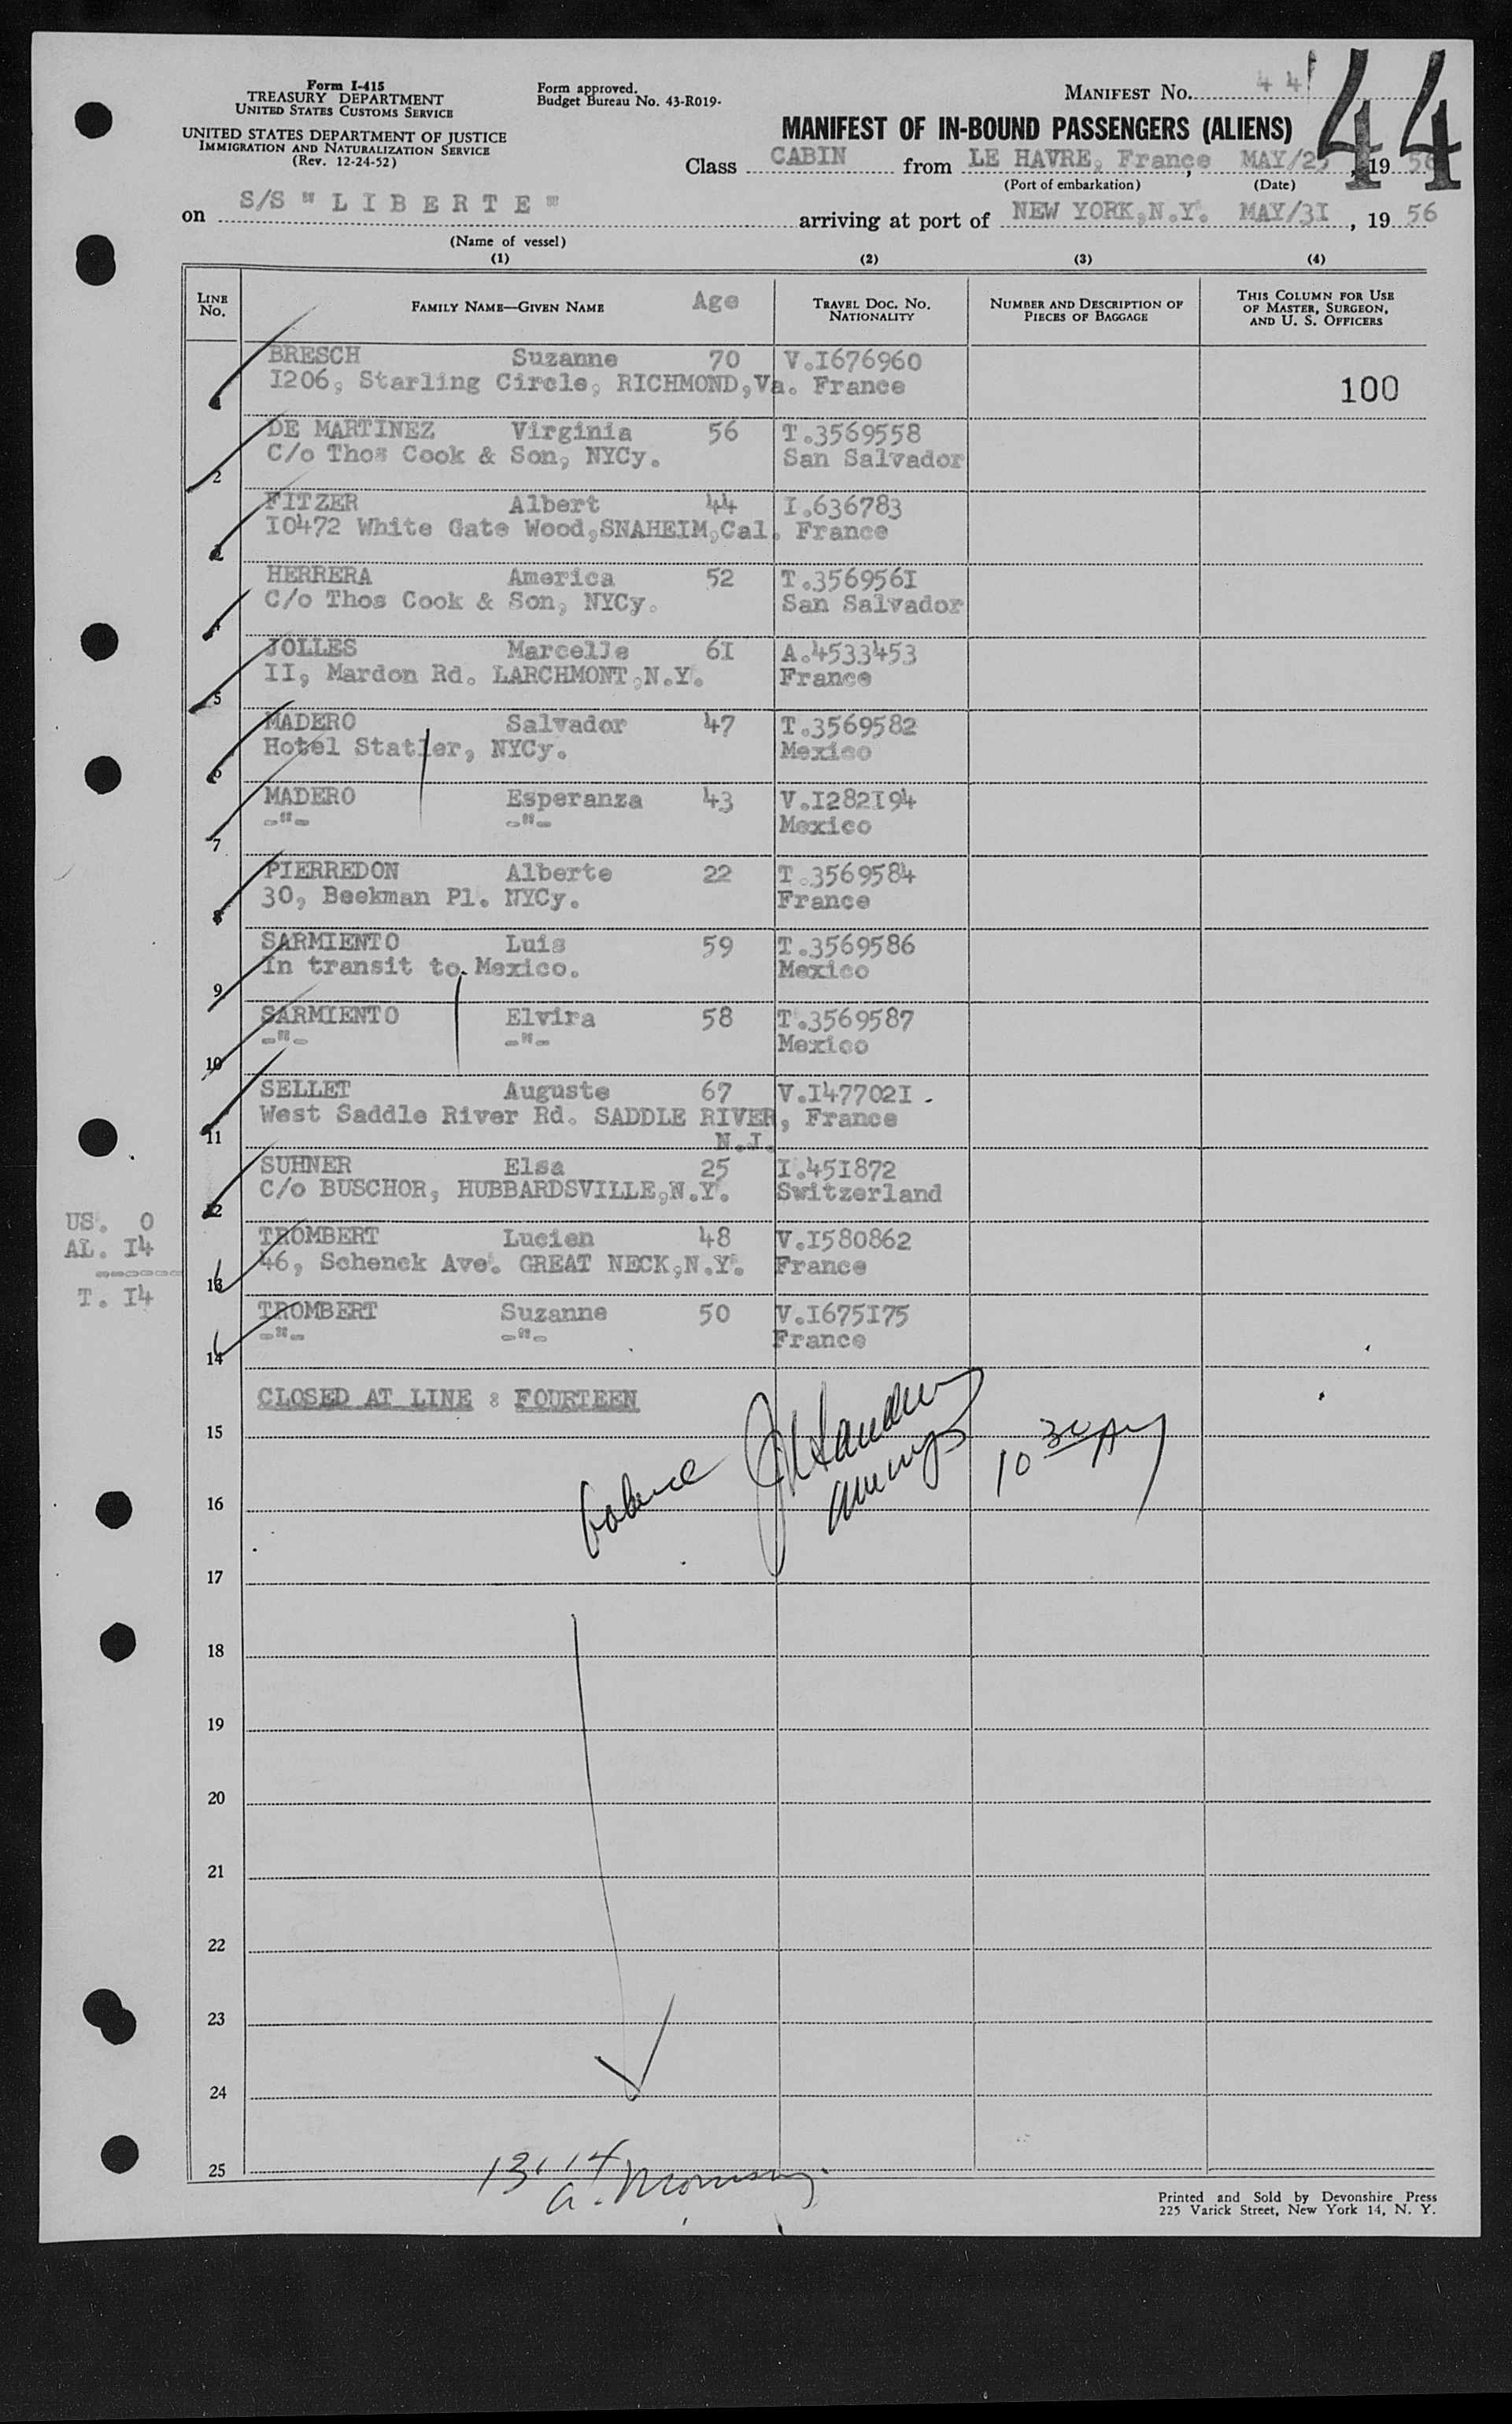 Form I-415
TREASURY DEPARTMENT
UNITED STATES CUSTOMS SERVICE
UNITED STATES DEPARTMENT OF JUSTICE
IMMIGRATION AND NATURALIZATION SERVICE
(Rev. 12-24-52)
Form approved.
Budget Bureau No. 43-R019-
MANIFEST No. 44
44
MANIFEST OF IN-BOUND PASSENGERS (ALIENS)
Class CABIN from LE HAVRE, France, MAY/25, 19 56
(Port of embarkation) (Date)
on S/S " L I B E R T E " arriving at port of NEW YORK,N.Y. MAY/3I, 19 56
(Name of vessel)
(1) (2) (3) (4)
LINE No. FAMILY NAME—GIVEN NAME Age TRAVEL DOC. NO. NATIONALITY NUMBER AND DESCRIPTION OF PIECES OF BAGGAGE THIS COLUMN FOR USE OF MASTER, SURGEON, AND U. S. OFFICERS
BRESCH Suzanne 70 V.I676960
I206, Starling Circle, RICHMOND,Va. France 100
DE MARTINEZ Virginia 56 T.3569558
2 C/o Thos Cook & Son, NYCy. San Salvador
FITZER Albert 44 I.636783
I0472 White Gate Wood,SNAHEIM,Cal. France
HERRERA America 52 T.356956I
4 C/o Thos Cook & Son, NYCy. San Salvador
JOLLES Marcelle 6I A.4533453
5 II, Mardon Rd. LARCHMONT,N.Y. France
MADERO Salvador 47 T.3569582
6 Hotel Statler, NYCy. Mexico
MADERO Esperanza 43 V.I282I94
7 -"- -"- Mexico
PIERREDON Alberte 22 T.3569584
8 30, Beekman Pl. NYCy. France
SARMIENTO Luis 59 T.3569586
9 In transit to Mexico. Mexico
SARMIENTO Elvira 58 T.3569587
10 -"- -"- Mexico
SELLET Auguste 67 V.I47702I.
11 West Saddle River Rd. SADDLE RIVER, France
N.J.
SUHNER Elsa 25 I.45I872
12 C/o BUSCHOR, HUBBARDSVILLE,N.Y. Switzerland
TROMBERT Lucien 48 V.I580862
13 46, Schenck Ave. GREAT NECK,N.Y. France
TROMBERT Suzanne 50 V.I675I75
14 -"- -"- France
US. 0
AL. I4
------
T. I4
CLOSED AT LINE : FOURTEEN
15
10 30 AM
16
17
18
19
20
21
22
23
24
25
13, 14
Printed and Sold by Devonshire Press
225 Varick Street, New York 14, N. Y.